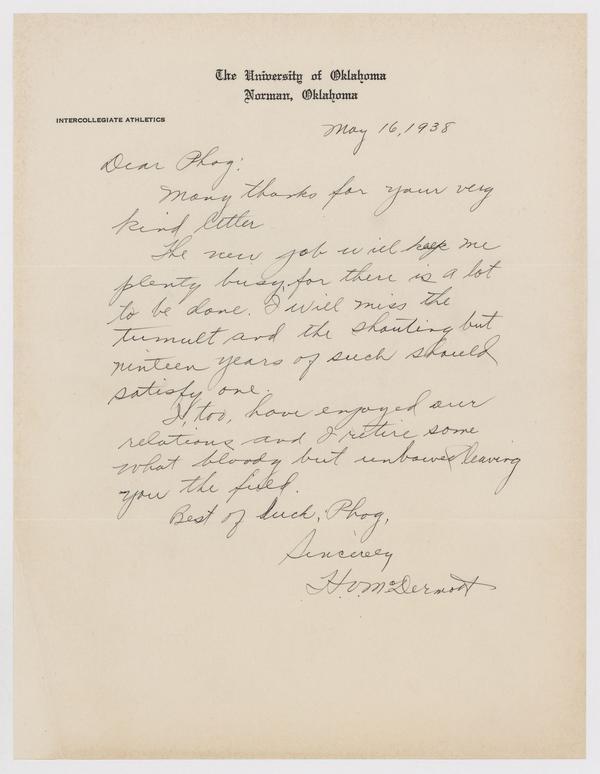 The University of Oklahoma
Norman, Oklahoma
INTERCOLLEGIATE ATHLETICS
May 16, 1938
Dear Phog:
Many thanks for your very
kind letter
The new job will keep me
plenty busy, for there is a lot
to be done. I will miss the
tumult and the shouting but
ninteen years of such should
satisfy one.
I, too, have enjoyed our
relations and I retire some
what bloody but unbowed leaving
you the field.
Best of luck, Phog,
Sincerely
H.V. McDermott